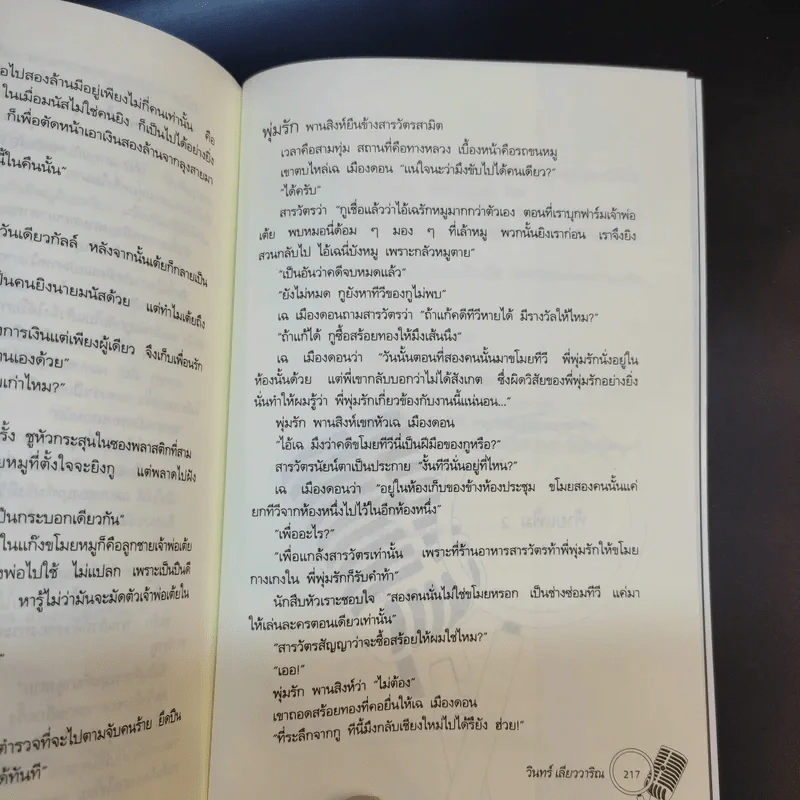 อไปสองล้านมีอยู่เพียงไม่กี่คนเท่านั้น คือ
ในเมื่อมนัสไม่ใช่คนยิง ก็เป็นไปได้อย่างยิ่ง
ก็เพื่อตัดหน้าเอาเงินสองล้านจากลุงสายมา
นี้ในคืนนั้น"
วันเดียวกัลล์ หลังจากนั้นเต้ยก็กลายเป็น
ป็นคนยิงนายมนัสด้วย แต่ทำไมเต้ยถึง
งการเงินแต่เพียงผู้เดียว จึงเก็บเพื่อนรัก
านเองด้วย"
มเก่าไหม?"
รั้ง ชูหัวกระสุนในซองพลาสติกที่สาม
ยหมูที่ตั้งใจจะยิงกู แต่พลาดไปฝัง
ป็นกระบอกเดียวกัน"
ในแก๊งขโมยหมูก็คือลูกชายเจ้าพ่อเต้ย
งพ่อไปใช้ ไม่แปลก เพราะเป็นปืนดี
หารู้ไม่ว่ามันจะมัดตัวเจ้าพ่อเต้ยใน
ตำรวจที่จะไปตามจับคนร้าย ยึดปืน
ด้ทันที"
พุ่มรัก พานสิงห์ยืนข้างสารวัตรสามิต
เวลาคือสามทุ่ม สถานที่คือทางหลวง เบื้องหน้าคือรถขนหมู
เขาตบไหล่เฉ เมืองดอน "แน่ใจนะว่ามึงขับไปได้คนเดียว?"
"ได้ครับ"
สารวัตรว่า "กูเชื่อแล้วว่าไอ้เฉรักหมูมากกว่าตัวเอง ตอนที่เราบุกฟาร์มเจ้าพ่อ
เต้ย พบหมอนี่ด้อม ๆ มอง ๆ ที่เล้าหมู พวกนั้นยิงเราก่อน เราจึงยิง
สวนกลับไป ไอ้เฉนี่บังหมู เพราะกลัวหมูตาย"
"เป็นอันว่าคดีจบหมดแล้ว"
"ยังไม่หมด กูยังหาทีวีของกูไม่พบ"
เฉ เมืองดอนถามสารวัตรว่า "ถ้าแก้คดีทีวีหายได้ มีรางวัลให้ไหม?"
"ถ้าแก้ได้ กูซื้อสร้อยทองให้มึงเส้นนึง"
เฉ เมืองดอนว่า "วันนั้นตอนที่สองคนนั้นมาขโมยทีวี พี่พุ่มรักนั่งอยู่ใน
ห้องนั้นด้วย แต่พี่เขากลับบอกว่าไม่ได้สังเกต ซึ่งผิดวิสัยของพี่พุ่มรักอย่างยิ่ง
นั่นทำให้ผมรู้ว่า พี่พุ่มรักเกี่ยวข้องกับงานนี้แน่นอน..."
พุ่มรัก พานสิงห์เขกหัวเฉ เมืองดอน
"ไอ้เฉ มึงว่าคดีขโมยทีวีนี่เป็นฝีมือของกูหรือ?"
สารวัตรนัยน์ตาเป็นประกาย "งั้นทีวีนั่นอยู่ที่ไหน?"
เฉ เมืองดอนว่า "อยู่ในห้องเก็บของข้างห้องประชุม ขโมยสองคนนั้นแค่
ยกทีวีจากห้องหนึ่งไปไว้ในอีกห้องหนึ่ง"
"เพื่ออะไร?"
"เพื่อแกล้งสารวัตรเท่านั้น เพราะที่ร้านอาหารสารวัตรท้าพี่พุ่มรักให้ขโมย
กางเกงใน พี่พุ่มรักก็รับคำท้า"
นักสืบหัวเราะชอบใจ "สองคนนั่นไม่ใช่ขโมยหรอก เป็นช่างซ่อมทีวี แค่มา
ให้เล่นละครตอนเดียวเท่านั้น"
"สารวัตรสัญญาว่าจะซื้อสร้อยให้ผมใช่ไหม?"
"เออ!"
พุ่มรัก พานสิงห์ว่า "ไม่ต้อง"
เขาถอดสร้อยทองที่คอยื่นให้เฉ เมืองดอน
"ที่ระลึกจากกู ทีนี้มึงกลับเชียงใหม่ไปได้รึยัง ฮ่วย!"
วินทร์ เลียววาริณ
217